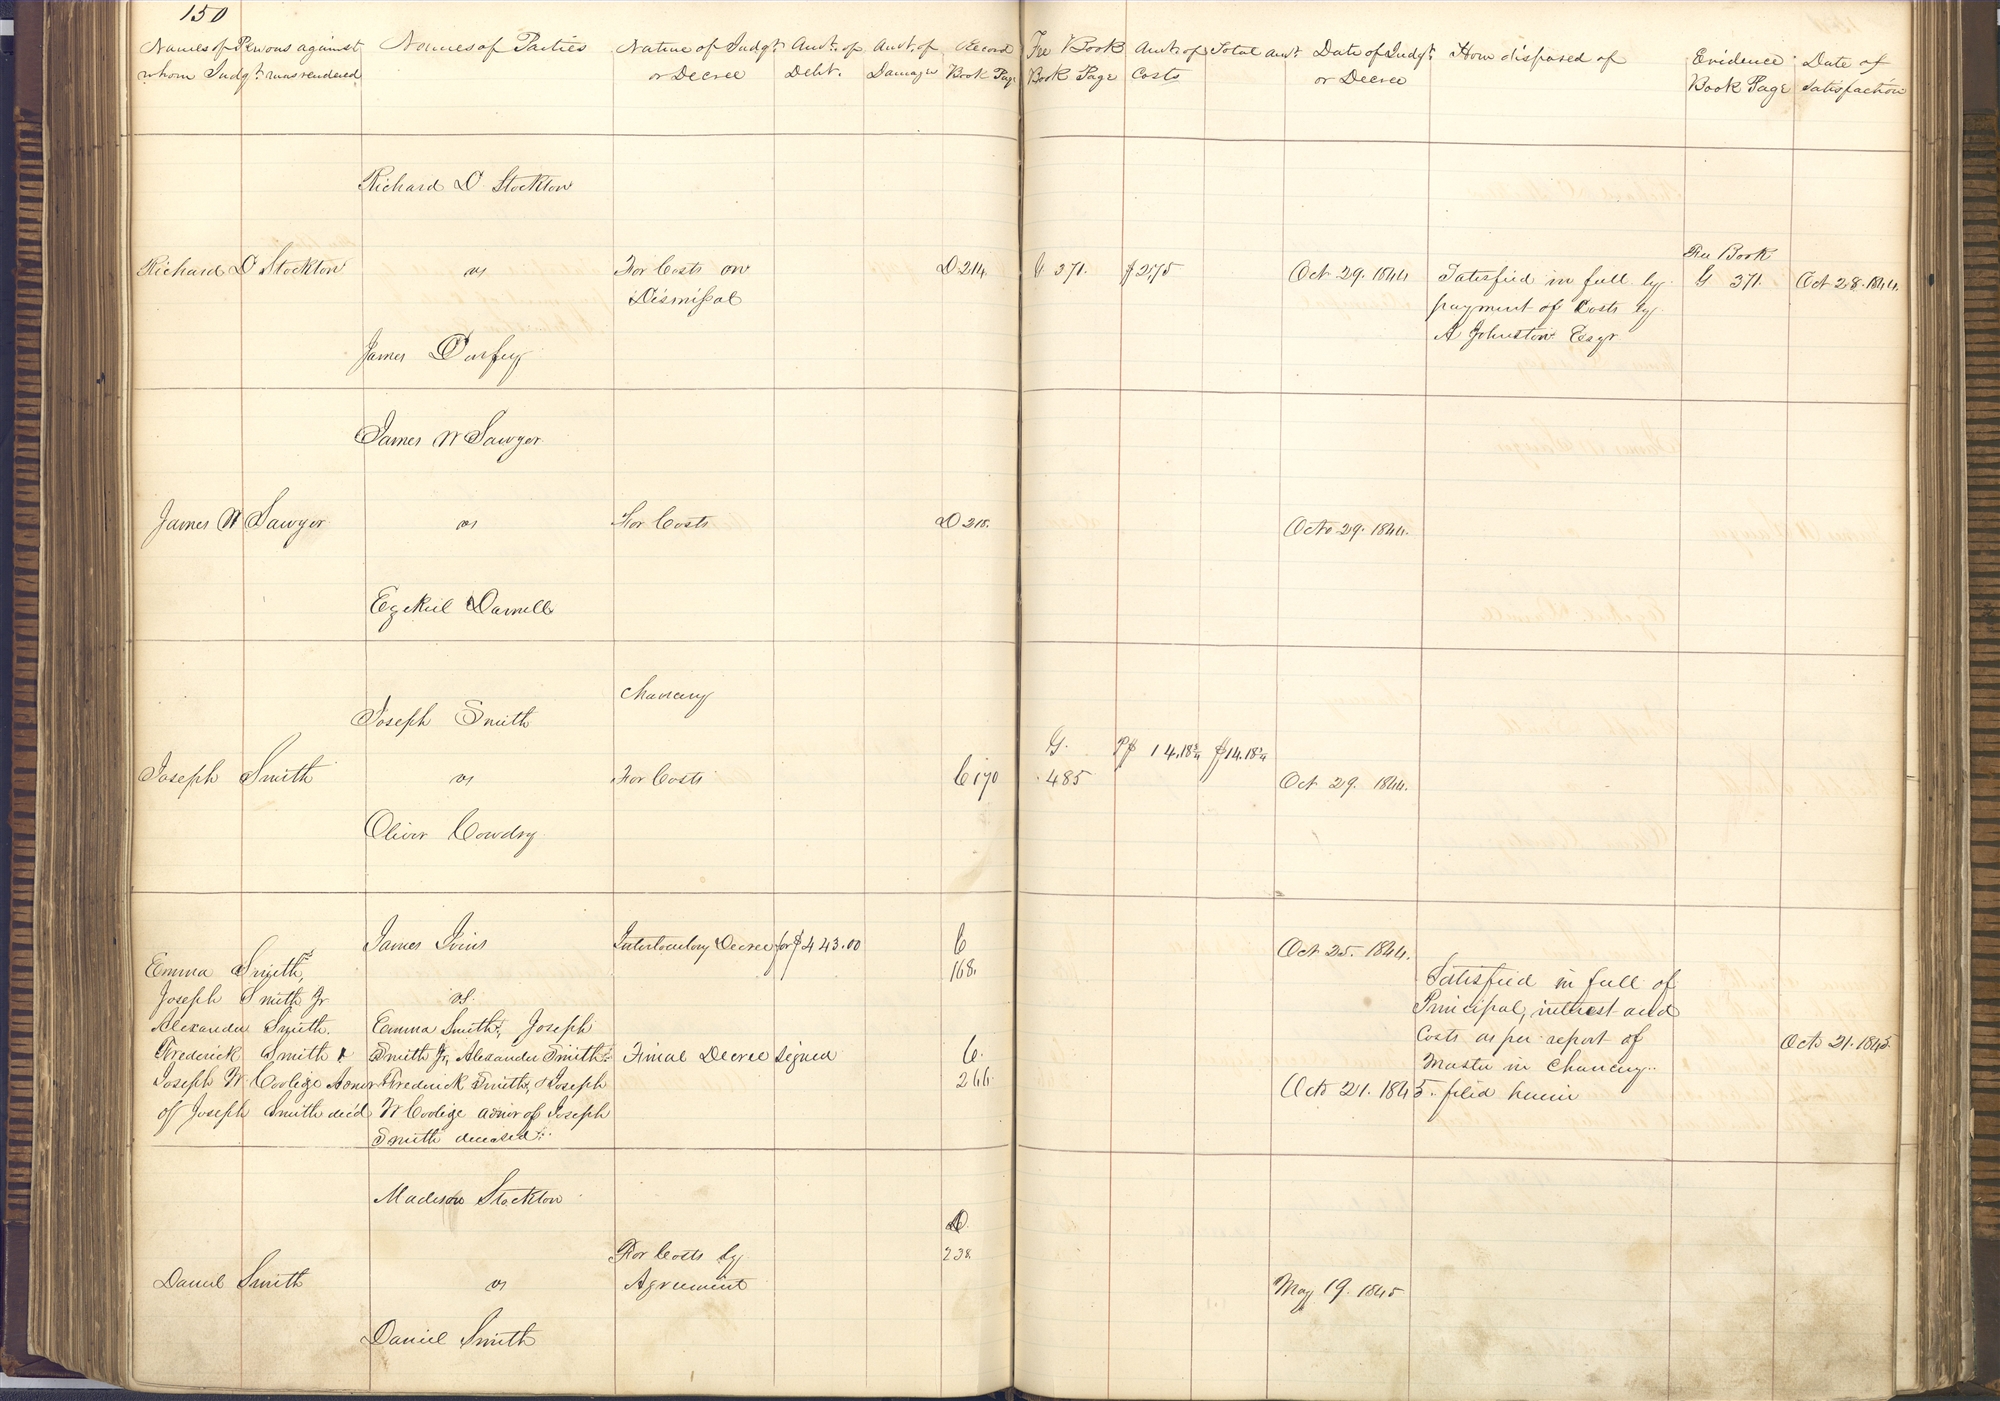 150
Names of Persons against whom Judgt. was rendered
Names of Parties
Nature of Judgt. or Decree
Amt. of Debt.
Amt. of Damages
Record Book Page
Fee Book Book Page
Amt. of Costs
Total amt.
Date of Judgt. or Decree
How disposed of
Evidence Book Page
Date of Satisfaction
Richard D Stockton
Richard D Stockton
vs
For Costs on
Dismissal
D 214.
G 371.
$2.75
Oct. 29. 1844
Satisfied in full by
payment of Costs by
A Johnston Esqr
Fee Book
G 371.
Oct 28. 1844.
James Durfey
James W Sawyer
James W Sawyer
vs
For Costs
D 215.
Octo 29. 1844.
Ezekiel Darnell
Chancery
Joseph Smith
Joseph Smith
vs
For Costs
C 170
G.
485
14.18¾
$14.18¾
Oct 29. 1844.
Oliver Cowdry
James Ivins
Interlocutory Decree for $443.00
C
168.
Oct 25. 1844.
Emma Smith,
Joseph Smith Jr
Alexander Smith.
Frederick Smith &
Joseph W Coolige Admr
of Joseph Smith decd
vs.
Emma Smith, Joseph
Smith Jr, Alexander Smith
Frederick Smith, & Joseph
W Coolige admr of Joseph
Smith deceased
Final Decree signed
C.
266.
Octo 21. 1845.
Satisfied in full of
Principal, interest and
Costs as per report of
Master in Chancery..
filed herein
Octo 21. 1845.
Madison Stockton
D.
238.
For Costs by
Agreement
Daniel Smith
vs
May 19. 1845
Daniel Smith